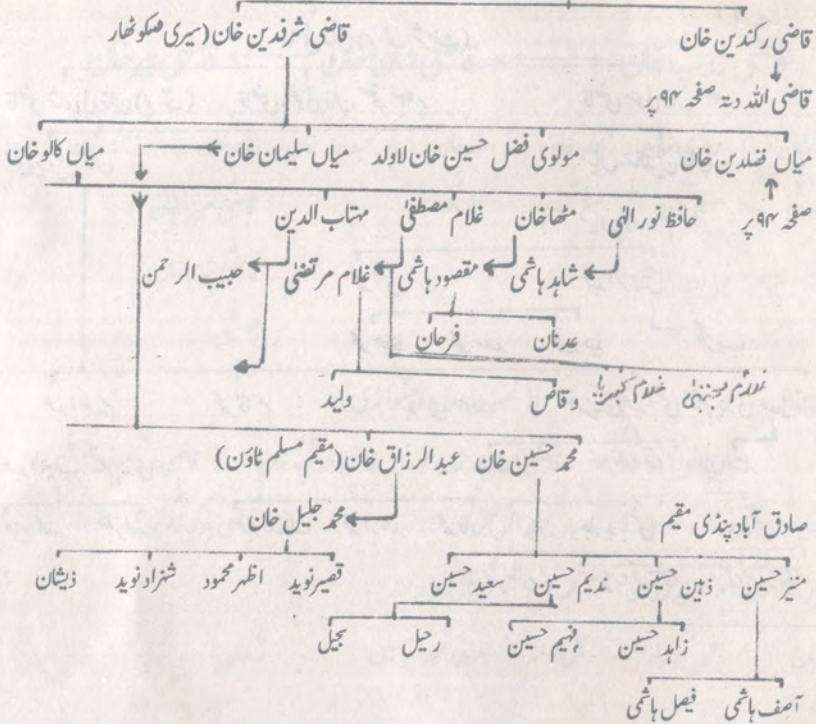 قاضی رکندین خان قاضی شرفدین خان (سیری
قاضی اللہ دتہ صفحہ ۹۴ پر
میاں فضلدین خان مولوی فضل حسین خان لاولد میاں سلیمان خان میاں کالو خان
صفحہ ۹۴ پر حافظ نور الٰہی مٹھا خان غلام مصطفیٰ مہتاب الدین
شاہد ہاشمی مقصود ہاشمی غلام مرتضیٰ حبیب الرحمن
عدنان فرحان
غلام مجتبیٰ غلام کبریا
وقاص ولید
محمد حسین خان عبدالرزاق خان (مقیم مسلم ٹاؤن)
صادق آباد پنڈی مقیم محمد جلیل خان
منیر حسین ذہین حسین ندیم حسین سعید حسین قصیر نوید اظہر محمود شہزاد نوید ذیشان
زاہد حسین فہیم حسین رحیل بجیل
آصف ہاشمی فیصل ہاشمی